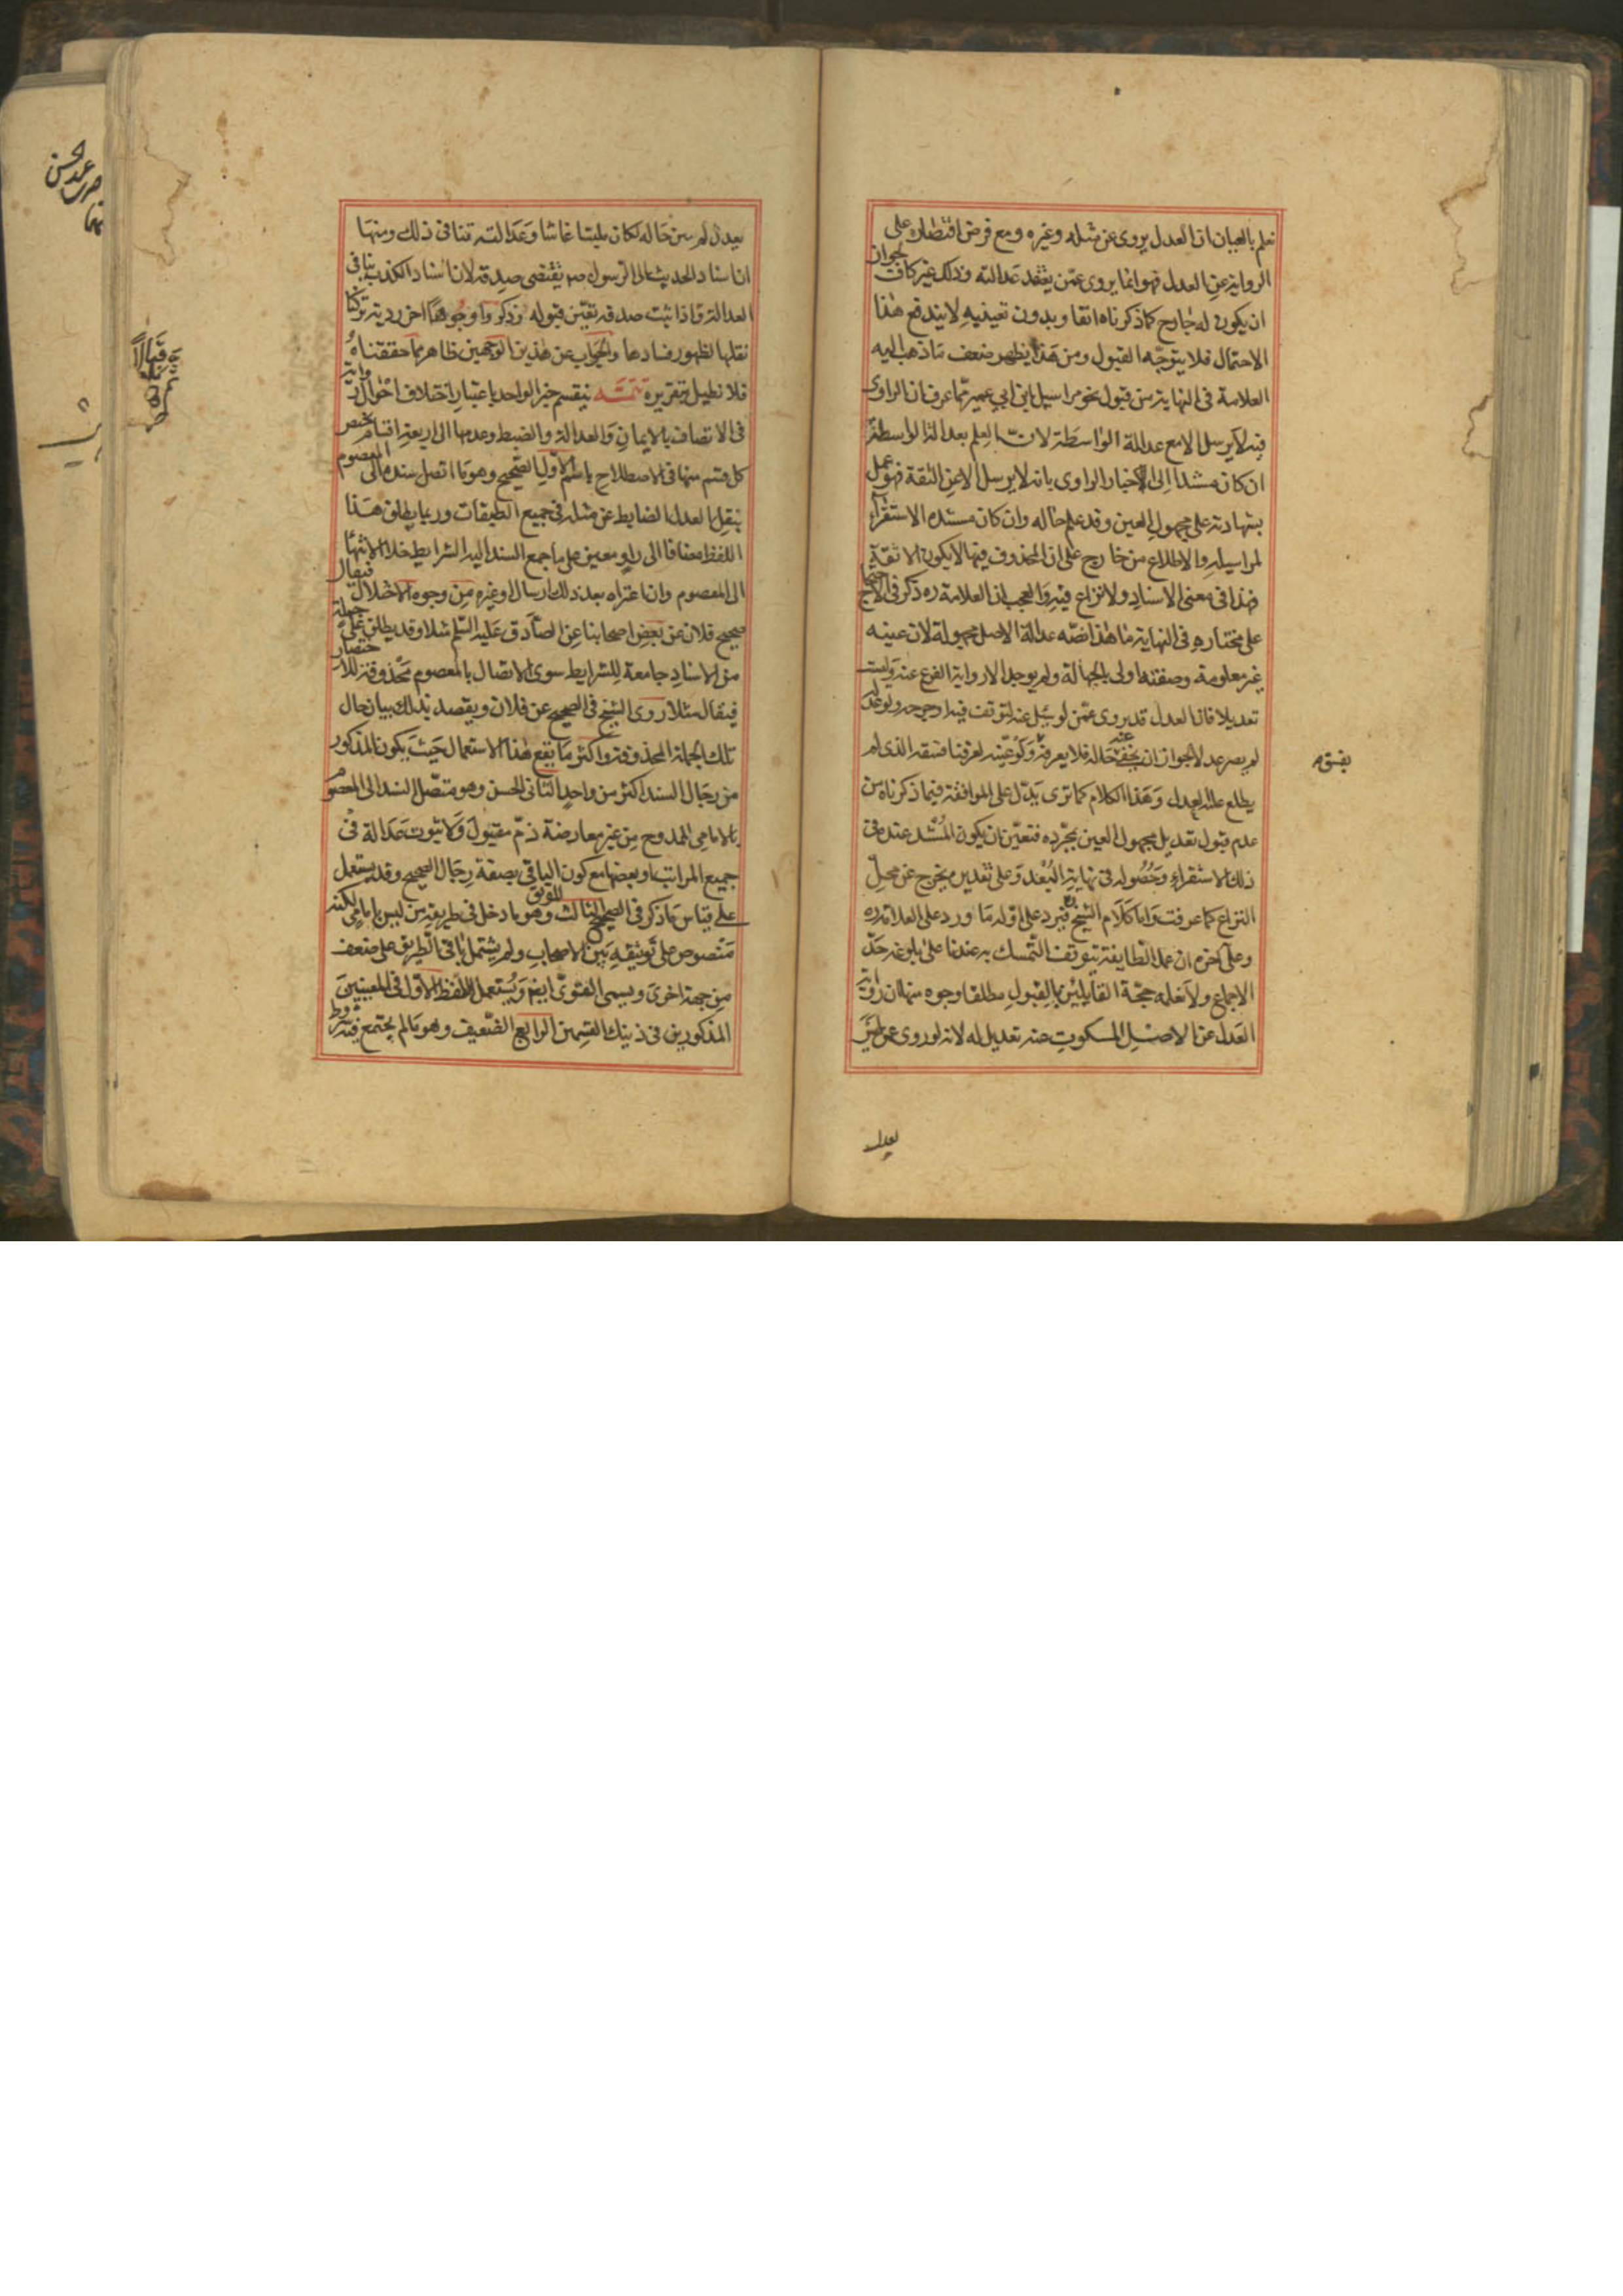 نعلم بالعيان ان العدل يروى عن مثله وغيره ومع فرض اقتصاره على
الرواية عن العدل فهو انما يروى عمّن يعتقد عدالته وذلك غير كاف لجواز
ان يكون له جارح كما ذكرناه انفا وبدون تعيينه لا يندفع هذا
الاحتمال فلا يتوجّه القبول ومن هذا يظهر ضعف ما ذهب اليه
العلامة فى النهاية من قبول نحو مراسيل ابن ابي عمير مما عرف ان الراوى
فيه لا يرسل الا مع عدالة الواسطة لان العلم بعدالة الواسطة
ان كان مستندا الى اخبار الراوى بانه لا يرسل الا عن الثقة فهو عمل
بشهادته على مجهول العين وقد علم حاله وان كان مستنده الاستقراء
لمراسيله والاطلاع من خارج على ان المحذوف فيها لا يكون الا ثقة
فهذا فى معنى الاسناد ولا نزاع فيه والعجب ان العلامة ره ذكر فى الاحتجاج
على مختاره فى النهاية ما هذا نصّه عدالة الاصل مجهولة لان عينه
غير معلومة وصفته اولى بالجهالة ولم يوجد الا رواية الفرع عنه وليست
تعديلا فان العدل قد يروى عمّن لو سئل عنه لتوقف فيه او جرحه ولو عدله
لم يصر عدلا لجواز ان يخفى عنه حاله فلا يعرفه ولو عيّنه لعرفنا فسقه الذى لم
يطلع عليه العدل وهذا الكلام كما ترى يدلّ على الموافقة فيما ذكرناه من
عدم قبول تعديل مجهول العين بمجرده فتعيّن ان يكون المستند عنده فى
ذلك الاستقراء وحصوله فى نهاية البعد وعلى تقديره يخرج عن محل
النزاع كما عرفت واما كلام الشيخ ره فيرد على اوّله ما ورد على العلامة ره
وعلى آخره ان عمل الطايفة يتوقف التمسك به عندنا على بلوغه حدّ
الاجماع ولا نعلمه حجّة القايلين بالقبول مطلقا وجوه منها ان رواية
العدل عن الاصل المسكوت عنه تعديل له لانه لو روى عن ليس
بفسق
بعدل
بعدل لم يبين حاله لكان ملبسا غاشا وعدالته تنافى ذلك ومنها
ان اسناد الحديث الى الرسول ص يقتضى صدقه لان اسناد الكذب ينافى
العدالة واذا ثبت صدقه تعيّن قبوله وذكروا وجوها اخر ردية تركنا
نقلها لظهور فسادها والجواب عن هذين الوجهين ظاهر مما حققناه
فلا نطيل بتقريره تتمّة ينقسم خبر الواحد باعتبار اختلاف احوال رواته
فى الاتصاف بالايمان والعدالة والضبط وعدمها الى اربعة اقسام يختص
كل قسم منها فى الاصطلاح باسم الاوّل الصحيح وهو ما اتصل سنده الى المعصوم
بنقل العدل الضابط عن مثله فى جميع الطبقات وربما يطلق هذا
اللفظ مضافا الى راو معين على ما جمع السند اليه الشرايط خلا الانتهاء
الى المعصوم وان اعتراه بعد ذلك ارسال او غيره من وجوه الاختلال فيقال
صحيح فلان عن بعض اصحابنا عن الصادق عليه السّلم مثلا وقد يطلق على جملة
من الاسناد جامعة للشرايط سوى الاتصال بالمعصوم محذوفة للاختصار
فيقال مثلا روى الشيخ فى الصحيح عن فلان ويقصد بذلك بيان حال
تلك الجملة المحذوفة واكثر ما يقع هذا الاستعمال حيث يكون المذكور
من رجال السند اكثر من واحد الثانى الحسن وهو متصل السند الى المعصوم
بالامامى الممدوح من غير معارضة ذمّ مقبول ولا ثبوت عدالة فى
جميع المراتب او بعضها مع كون الباقى بصفة رجال الصحيح وقد يستعمل
على قياس ما ذكر فى الصحيح الثالث الموثق وهو ما دخل فى طريقه من ليس بامامى لكنه
منصوص على توثيقه بين الاصحاب ولم يشتمل باقى الطريق على ضعف
من جهة اخرى ويسمى القوىّ ايضا ويستعمل اللفظ الاوّل فى المعنيين
المذكورين فى ذينك القسمين الرابع الضعيف وهو ما لم يجتمع فيه شروط